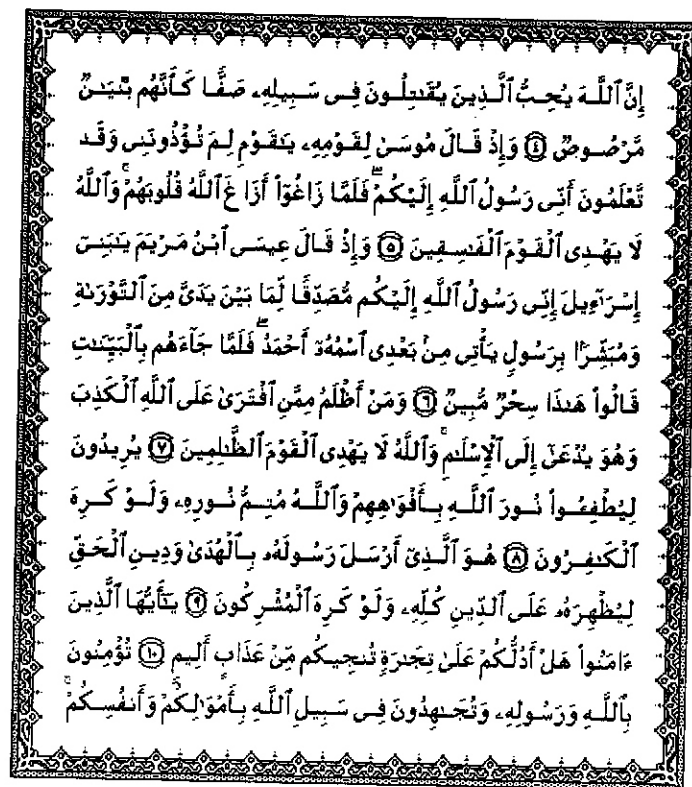 إِنَّ ٱللَّهَ يُحِبُّ ٱلَّذِينَ يُقَٰتِلُونَ فِى سَبِيلِهِۦ صَفًّا كَأَنَّهُم بُنْيَٰنٌ
مَّرْصُوصٌ ٤ وَإِذْ قَالَ مُوسَىٰ لِقَوْمِهِۦ يَٰقَوْمِ لِمَ تُؤْذُونَنِى وَقَد
تَّعْلَمُونَ أَنِّى رَسُولُ ٱللَّهِ إِلَيْكُمْ ۖ فَلَمَّا زَاغُوٓا۟ أَزَاغَ ٱللَّهُ قُلُوبَهُمْ ۚ وَٱللَّهُ
لَا يَهْدِى ٱلْقَوْمَ ٱلْفَٰسِقِينَ ٥ وَإِذْ قَالَ عِيسَى ٱبْنُ مَرْيَمَ يَٰبَنِىٓ
إِسْرَٰٓءِيلَ إِنِّى رَسُولُ ٱللَّهِ إِلَيْكُم مُّصَدِّقًا لِّمَا بَيْنَ يَدَىَّ مِنَ ٱلتَّوْرَىٰةِ
وَمُبَشِّرًۢا بِرَسُولٍ يَأْتِى مِنۢ بَعْدِى ٱسْمُهُۥٓ أَحْمَدُ ۖ فَلَمَّا جَآءَهُم بِٱلْبَيِّنَٰتِ
قَالُوا۟ هَٰذَا سِحْرٌ مُّبِينٌ ٦ وَمَنْ أَظْلَمُ مِمَّنِ ٱفْتَرَىٰ عَلَى ٱللَّهِ ٱلْكَذِبَ
وَهُوَ يُدْعَىٰٓ إِلَى ٱلْإِسْلَٰمِ ۚ وَٱللَّهُ لَا يَهْدِى ٱلْقَوْمَ ٱلظَّٰلِمِينَ ٧ يُرِيدُونَ
لِيُطْفِـُٔوا۟ نُورَ ٱللَّهِ بِأَفْوَٰهِهِمْ وَٱللَّهُ مُتِمُّ نُورِهِۦ وَلَوْ كَرِهَ
ٱلْكَٰفِرُونَ ٨ هُوَ ٱلَّذِىٓ أَرْسَلَ رَسُولَهُۥ بِٱلْهُدَىٰ وَدِينِ ٱلْحَقِّ
لِيُظْهِرَهُۥ عَلَى ٱلدِّينِ كُلِّهِۦ وَلَوْ كَرِهَ ٱلْمُشْرِكُونَ ٩ يَٰٓأَيُّهَا ٱلَّذِينَ
ءَامَنُوا۟ هَلْ أَدُلُّكُمْ عَلَىٰ تِجَٰرَةٍ تُنجِيكُم مِّنْ عَذَابٍ أَلِيمٍ ١٠ تُؤْمِنُونَ
بِٱللَّهِ وَرَسُولِهِۦ وَتُجَٰهِدُونَ فِى سَبِيلِ ٱللَّهِ بِأَمْوَٰلِكُمْ وَأَنفُسِكُمْ ۚ